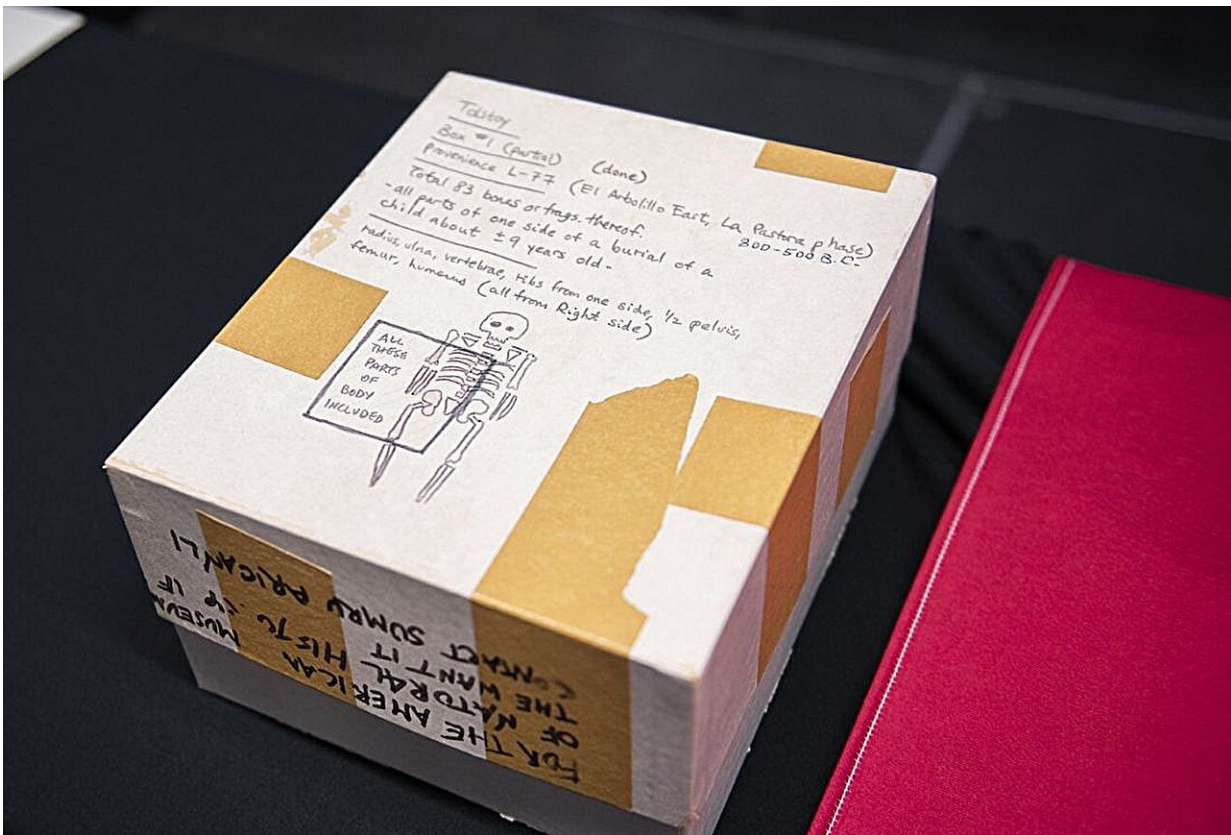 Tolstoy
Box #1 (partial) (done)
Provenience L-77 (El Arbolillo East, La Pastora phase)
800-500 B.C.
Total 83 bones or frags. thereof.
-all parts of one side of a burial of a
child about ±9 years old-
radius, ulna, vertebrae, ribs from one side, 1/2 pelvis,
femur, humerus (all from Right side)
ALL
THESE
PARTS
OF
BODY
INCLUDED
FOR THE AMERICAN MUSEUM
OF NATORAL HISTO
THE WANT IT IF
CONTACT